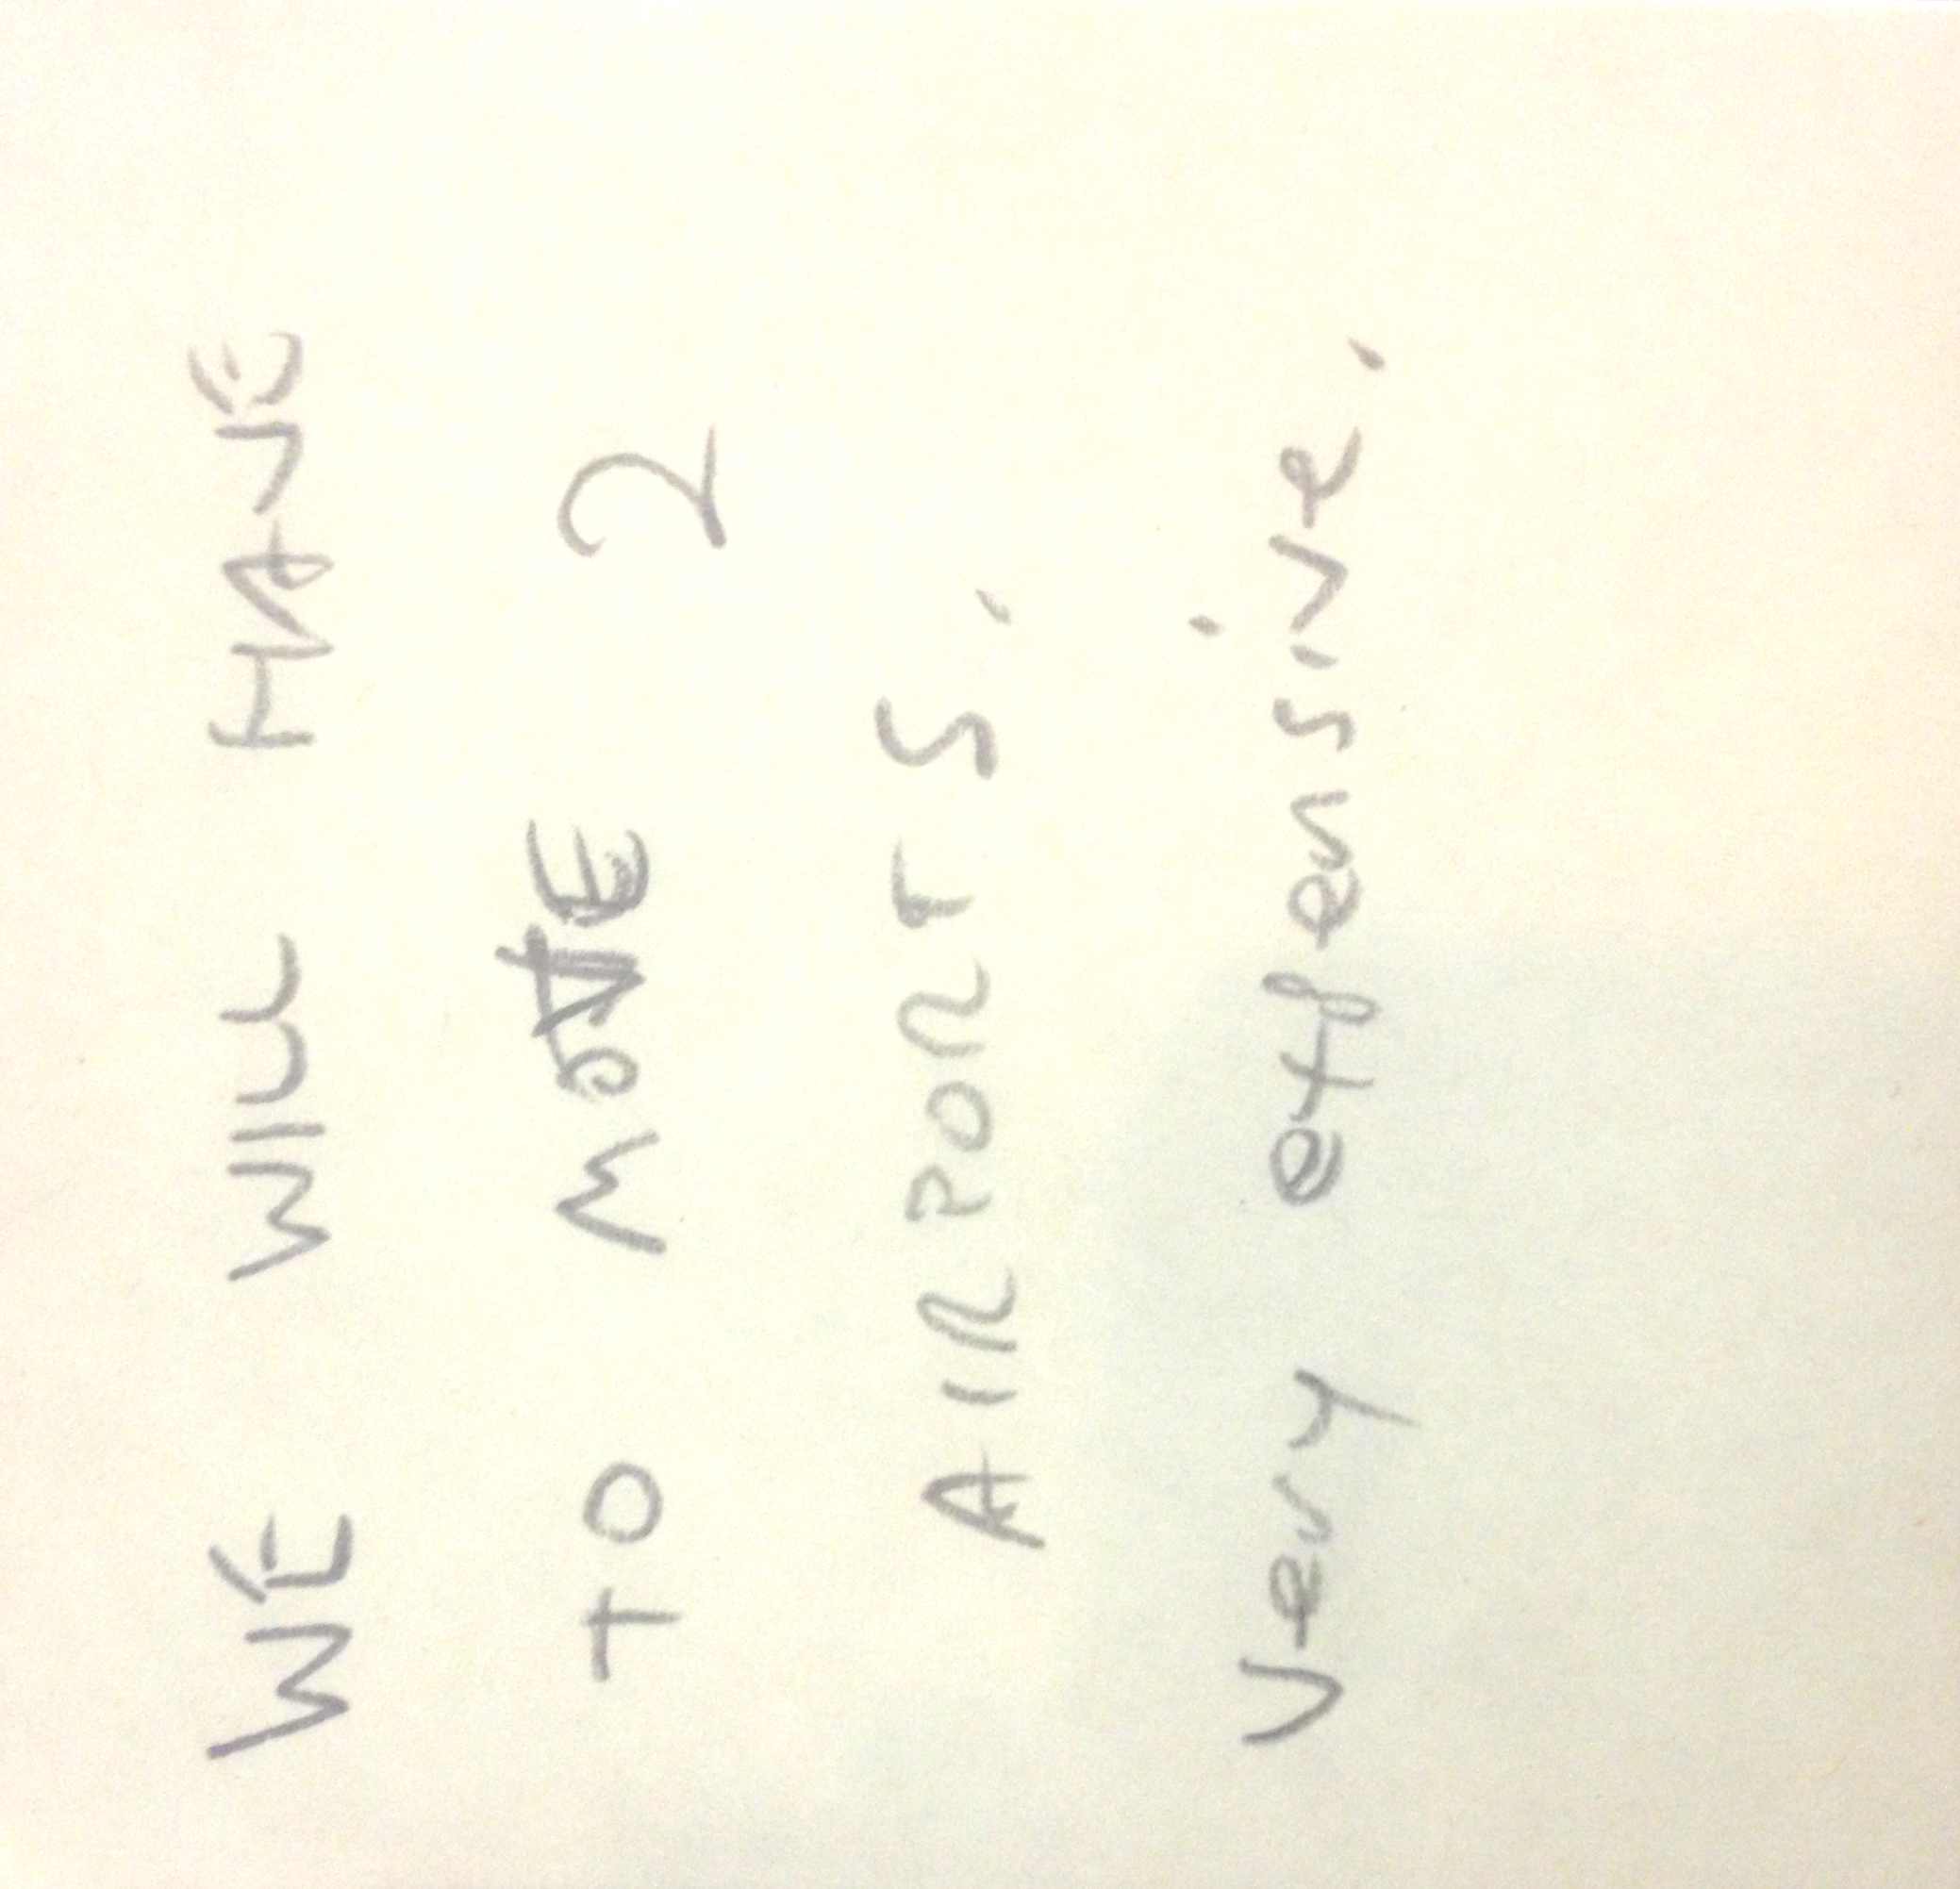 WE WILL HAVE
TO MOVE 2
AIRPORTS.
Very expensive.